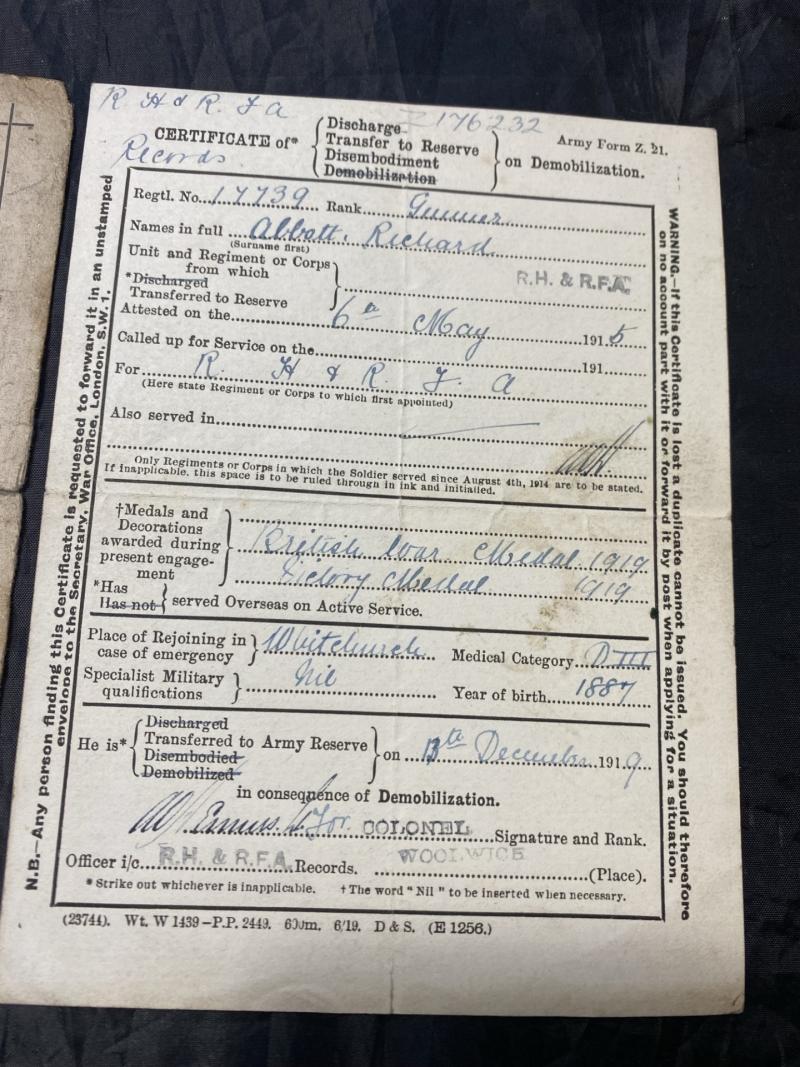 R H & R F A
Z 176232
CERTIFICATE of* { Discharge
Transfer to Reserve
Disembodiment
Demobilization } on Demobilization.
Army Form Z. 21.
Records
Regtl. No. 17739 Rank Gunner
Names in full Abbott, Richard
(Surname first)
Unit and Regiment or Corps
from which
*Discharged
Transferred to Reserve
R.H. & R.F.A.
Attested on the 6th May 1915
Called up for Service on the 191
For R. H & R. F. A
(Here state Regiment or Corps to which first appointed)
Also served in
Only Regiments or Corps in which the Soldier served since August 4th, 1914 are to be stated.
If inapplicable, this space is to be ruled through in ink and initialled.
†Medals and
Decorations
awarded during
present engage-
ment
British War Medal 1919
Victory Medal 1919
*Has
Has not } served Overseas on Active Service.
Place of Rejoining in
case of emergency } Whitchurch Medical Category D III
Specialist Military
qualifications } Nil Year of birth 1887
He is* { Discharged
Transferred to Army Reserve
Disembodied
Demobilized } on 13th December 1919
in consequence of Demobilization.
for COLONEL Signature and Rank.
Officer i/c R.H. & R.F.A. Records. WOOLWICH (Place).
* Strike out whichever is inapplicable. † The word "Nil" to be inserted when necessary.
(23744). Wt. W 1439-P.P. 2449. 600m. 6/19. D & S. (E 1256.)
N.B.—Any person finding this Certificate is requested to forward it in an unstamped
envelope to the Secretary, War Office, London, S.W. 1.
WARNING.—If this Certificate is lost a duplicate cannot be issued. You should therefore
on no account part with it or forward it by post when applying for a situation.